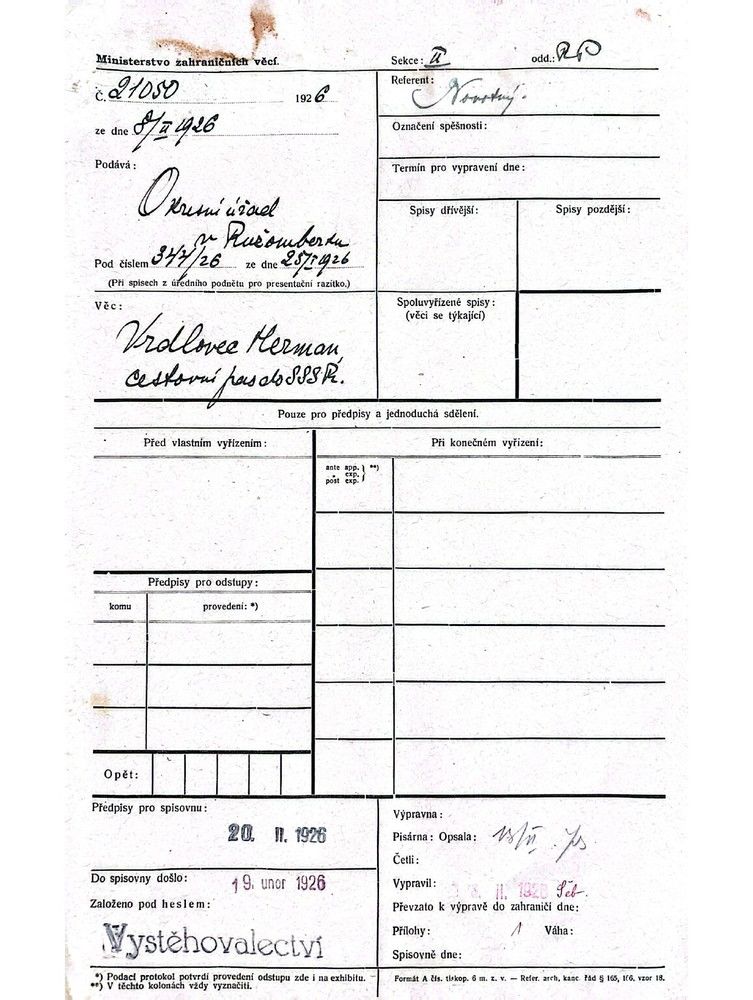 Ministerstvo zahraničních věcí.
Sekce: II odd.: RP
Č. 21050 1926
Referent: Novotný.
ze dne 8/II 1926
Označení spěšnosti:
Podává:
Termín pro vypravení dne:
Okresní úřad
v Ružomberku
Pod číslem 347/26 ze dne 25/I 1926
(Při spisech z úředního podnětu pro presentační razítko.)
Spisy dřívější:
Spisy pozdější:
Věc:
Vrdlovec Herman,
cestovní pas do SSSR.
Spoluvyřízené spisy:
(věci se týkající)
Pouze pro předpisy a jednoduchá sdělení.
Před vlastním vyřízením:
Při konečném vyřízení:
ante app. } **)
„ exp.
post exp.
Předpisy pro odstupy:
komu provedení: *)
Opět:
Předpisy pro spisovnu:
20. II. 1926
Do spisovny došlo: 19. únor 1926
Založeno pod heslem:
Vystěhovalectví
Výpravna:
Pisárna: Opsala:
Četli:
Vypravil: II. 1926
Převzato k výpravě do zahraničí dne:
Přílohy: 1 Váha:
Spisovně dne:
*) Podací protokol potvrdí provedení odstupu zde i na exhibitu.
**) V těchto kolonách vždy vyznačiti.
Formát A čís. tiskop. 6 m. z. v. — Refer. arch, kanc řád § 165, 166, vzor 18.